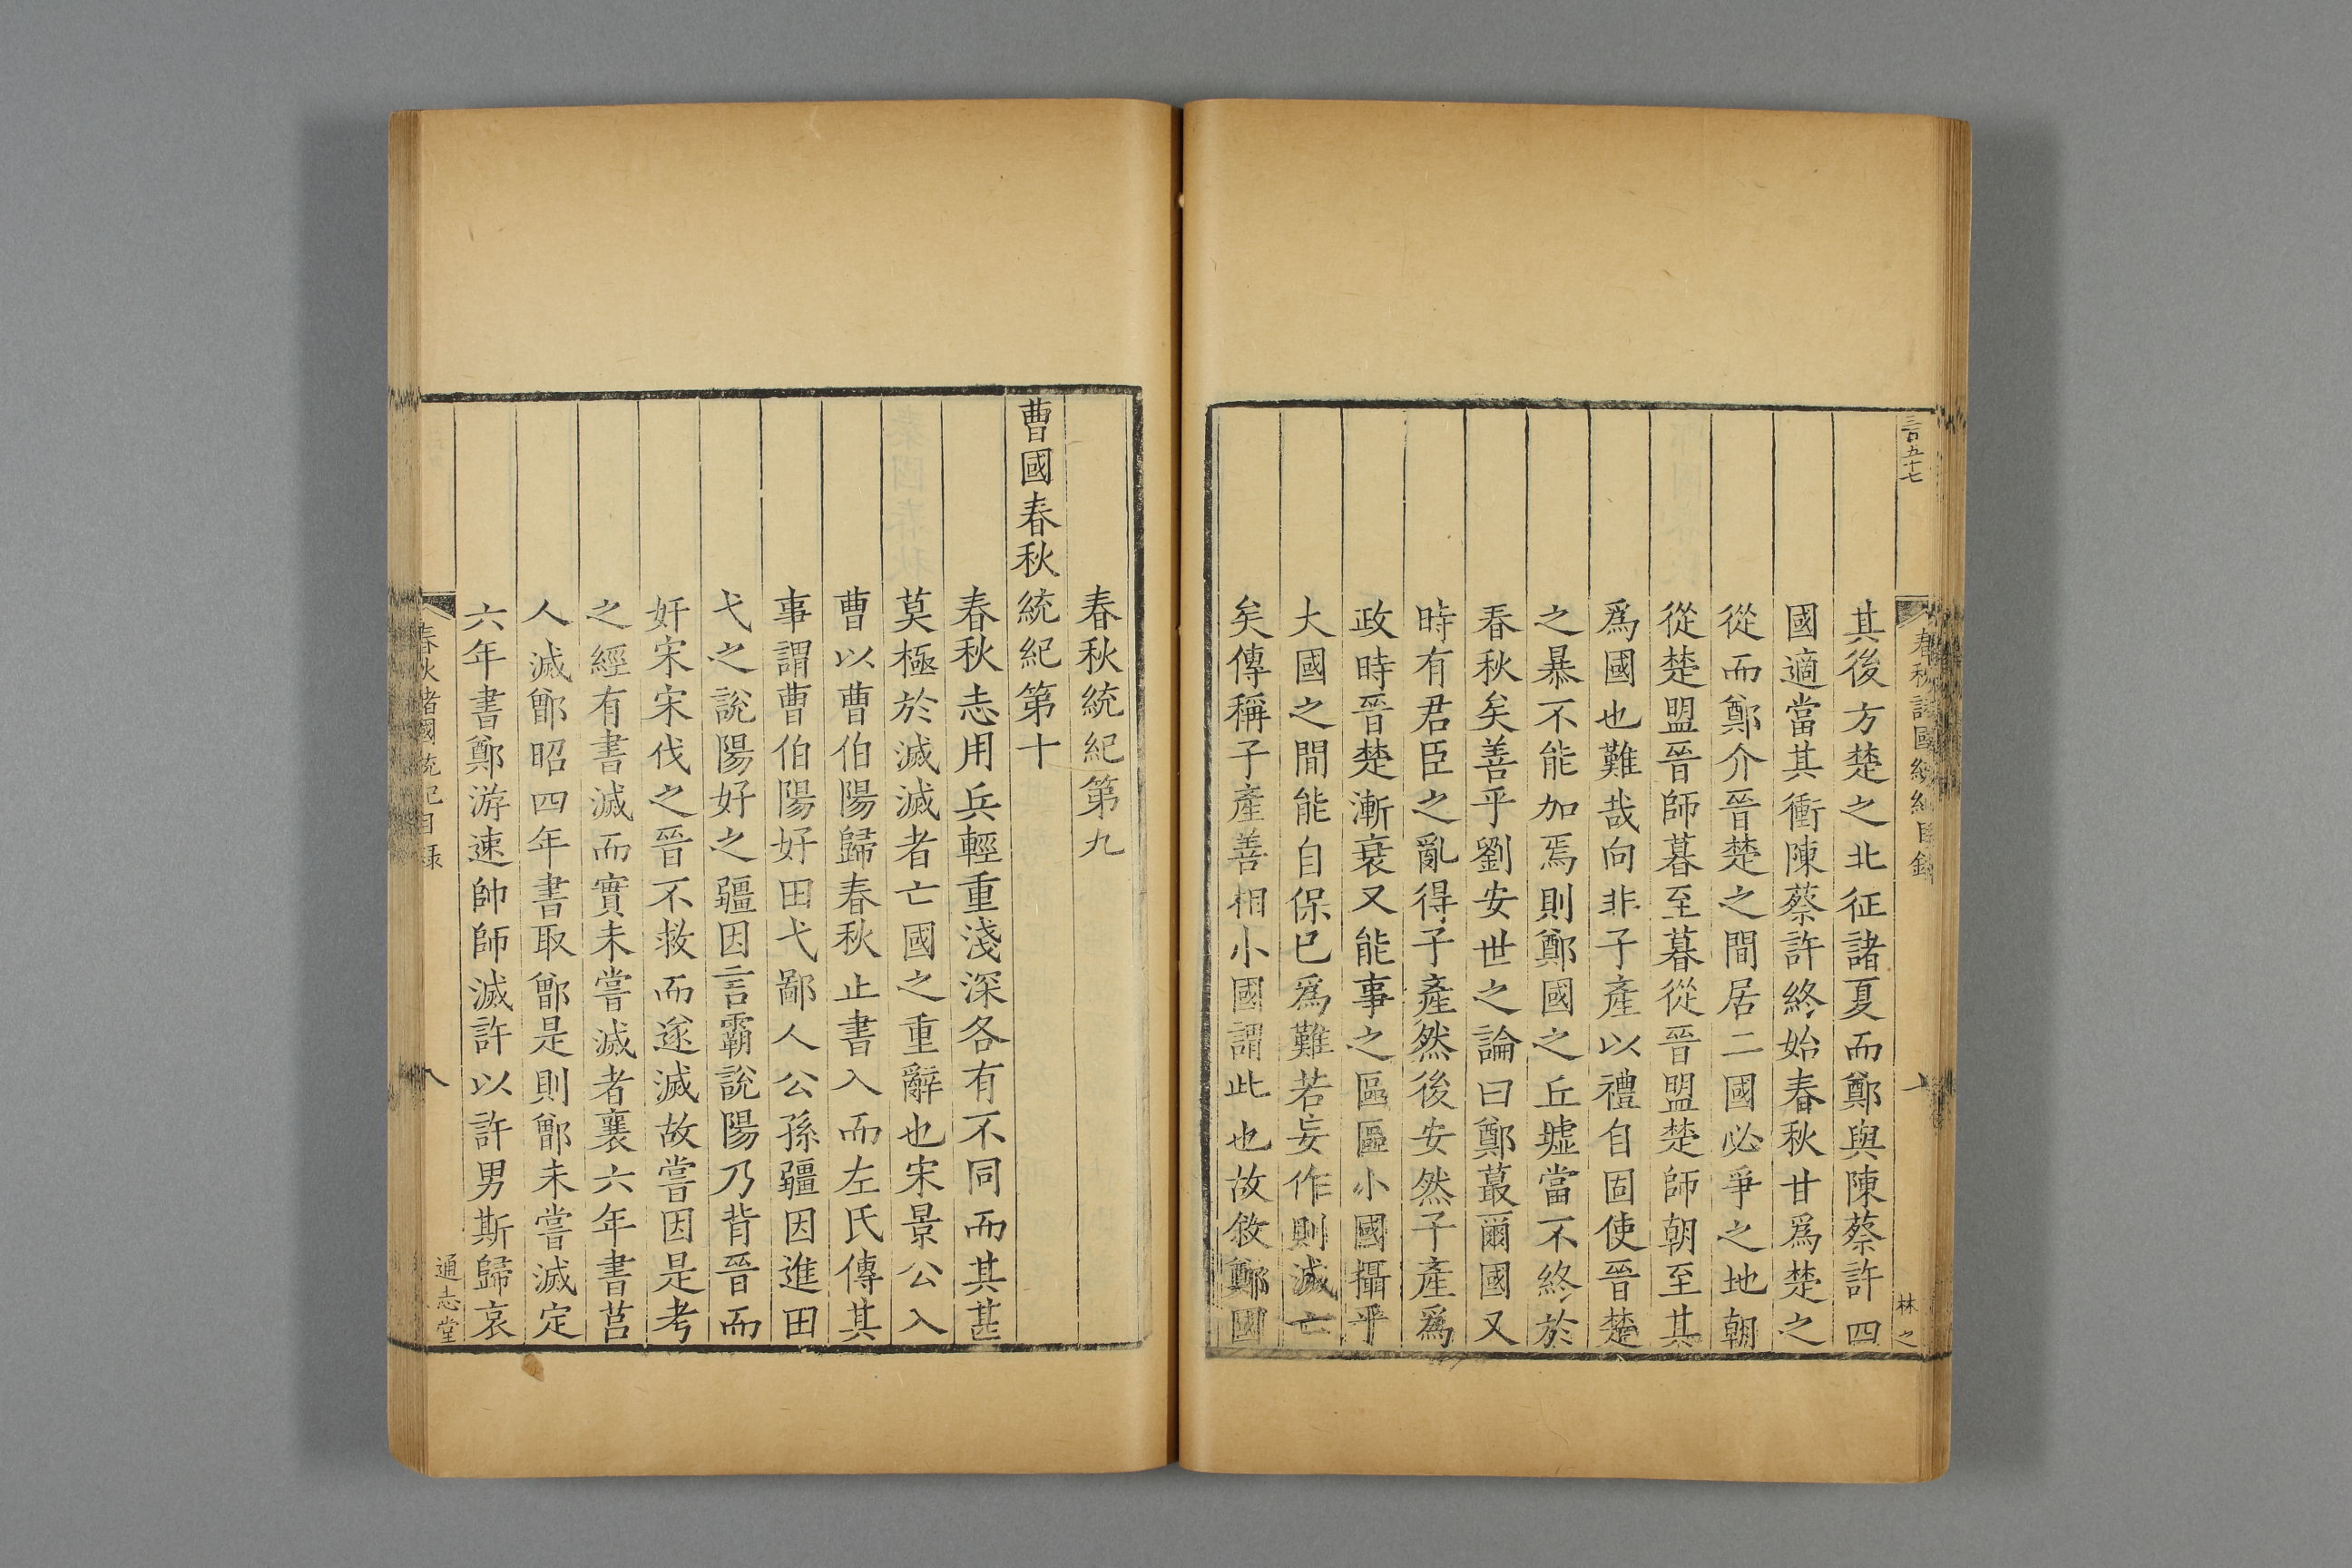 三百五十七
林之
其後方楚之北征諸夏而鄭與陳蔡許四
國適當其衝陳蔡許終始春秋甘爲楚之
從而鄭介晉楚之間居二國必爭之地朝
從楚盟晉師暮至暮從晉盟楚師朝至其
爲國也難哉向非子產以禮自固使晉楚
之暴不能加焉則鄭國之丘墟當不終於
春秋矣善乎劉安世之論曰鄭蕞爾國又
時有君臣之亂得子產然後安然子產爲
政時晉楚漸衰又能事之區區小國攝乎
大國之間能自保已爲難若妄作則滅亡
矣傳稱子產善相小國謂此也故敘鄭國
春秋統紀第九
曹國春秋統紀第十
春秋志用兵輕重淺深各有不同而其甚
莫極於滅滅者亡國之重辭也宋景公入
曹以曹伯陽歸春秋止書入而左氏傳其
事謂曹伯陽好田弋鄙人公孫疆因進田
弋之說陽好之疆因言霸說陽乃背晉而
奸宋宋伐之晉不救而遂滅故嘗因是考
之經有書滅而實未嘗滅者襄六年書莒
人滅鄫昭四年書取鄫是則鄫未嘗滅定
六年書鄭游速帥師滅許以許男斯歸哀
春秋諸國統紀目錄
八
通志堂